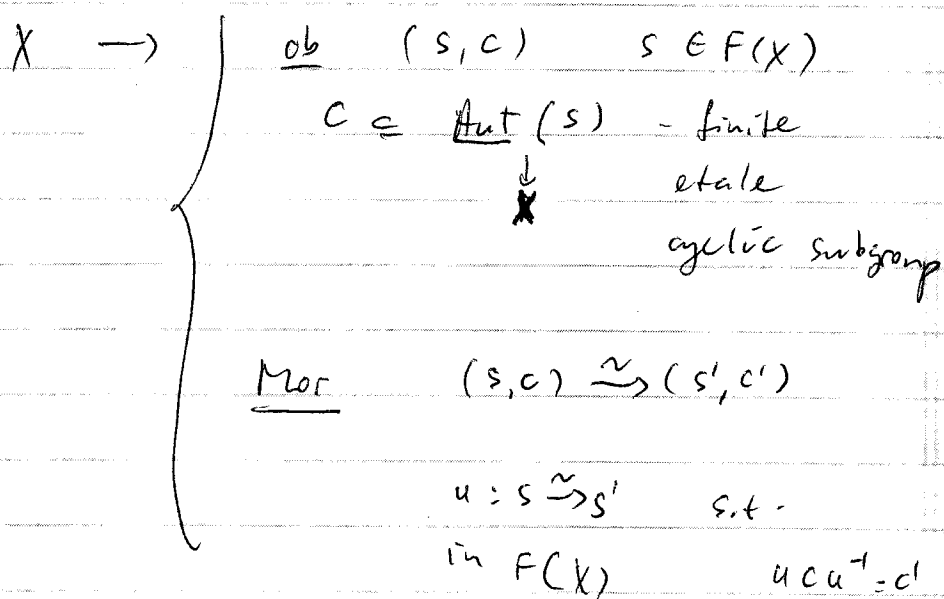 X → { ob (s, c) s ∈ F(X)
C ⊆ Aut (s) - finite
↓ etale
X cyclic subgroup
Mor (s, c) ⥲ (s', c')
u : s ⥲ s' s.t.
in F(X) u c u⁻¹ = c'